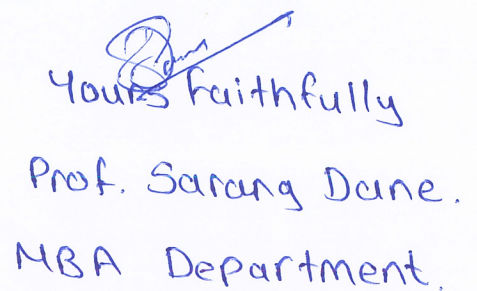 Yours Faithfully
Prof. Sarang Dane.
MBA Department.